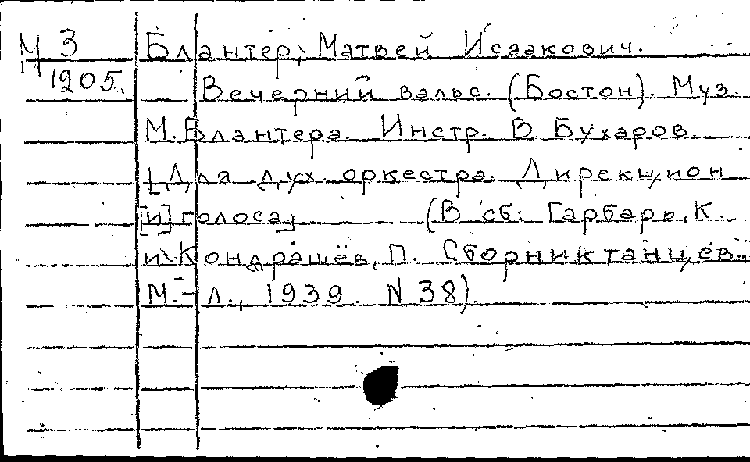 М 3 Блантер, Матвей Исаакович.
1905. Вечерний вальс. (Бостон). Муз.
М. Блантера. Инстр. В. Бухаров.
[Для дух. оркестра. Дирекцион
[и] голоса] (В сб: Гарбарь, К.
и Кондрашёв, П. Сборник танцев..
М.-Л., 1939. N 38)